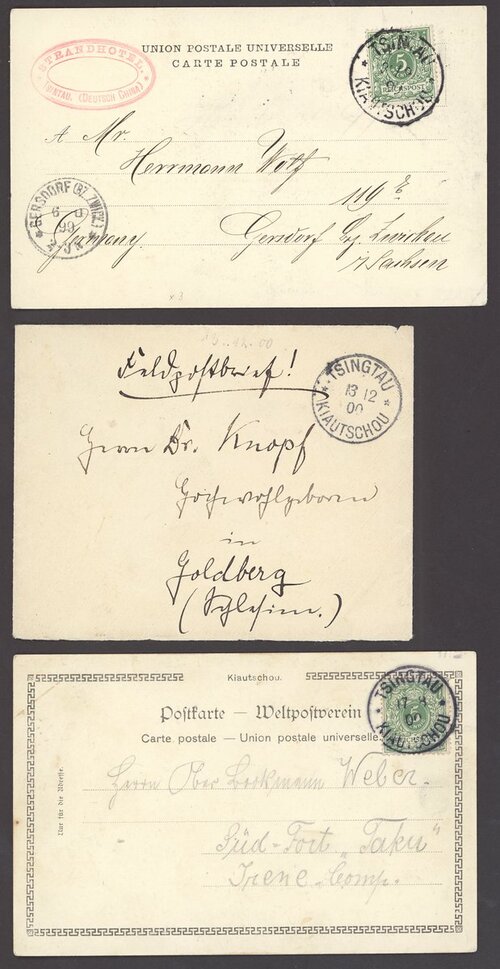 STRANDHOTEL
TSINTAU. (DEUTSCH CHINA)
UNION POSTALE UNIVERSELLE
CARTE POSTALE
TSINTAU
KIAUTSCHOU
5
REICHSPOST
A Mr.
Herrmann Wolf
119 E
Germany
Gersdorf Bz. Zwickau
i/Sachsen
GERSDORF (BZ. ZWICK.)
99
x3
13.12.00
Feldpostbrief!
TSINGTAU
13 12
00
KIAUTSCHOU
Herrn Dr. Knopf
Hochwohlgeboren
in
Goldberg
(Schlesien.)
Kiautschou.
Postkarte — Weltpostverein
Carte postale — Union postale universelle.
TSINGTAU
00
KIAUTSCHOU
5
Nur für die Adresse.
Herrn Ober Weber.
Süd-Fort „Taku"
Irene-Comp.